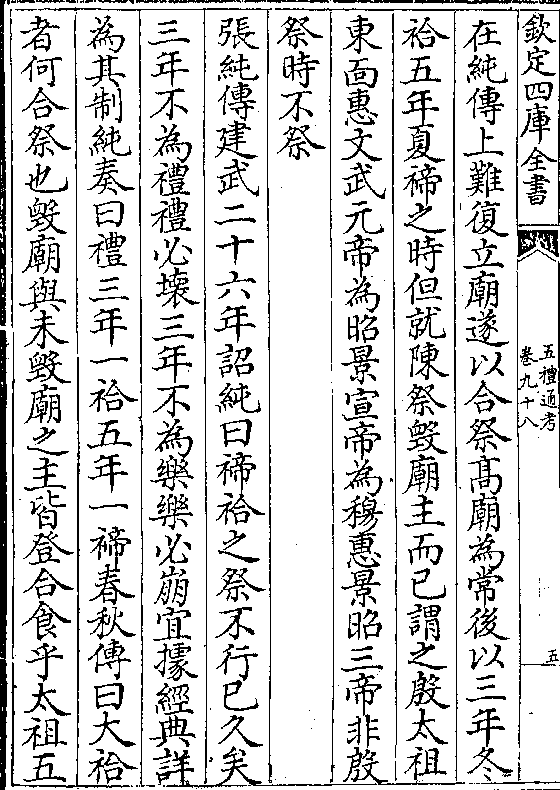 欽定四庫全書
五禮通考
卷九十八
五
在純傳上難復立廟遂以合祭髙廟為常後以三年冬
祫五年夏禘之時但就陳祭毁廟主而已謂之殷太祖
東面惠文武元帝為昭景宣帝為穆惠景昭三帝非殷
祭時不祭
張純傳建武二十六年詔純曰禘祫之祭不行已久矣
三年不為禮禮必壊三年不為樂樂必崩宜據經典詳
為其制純奏曰禮三年一祫五年一禘春秋傳曰大祫
者何合祭也毁廟與未毁廟之主皆登合食乎太祖五